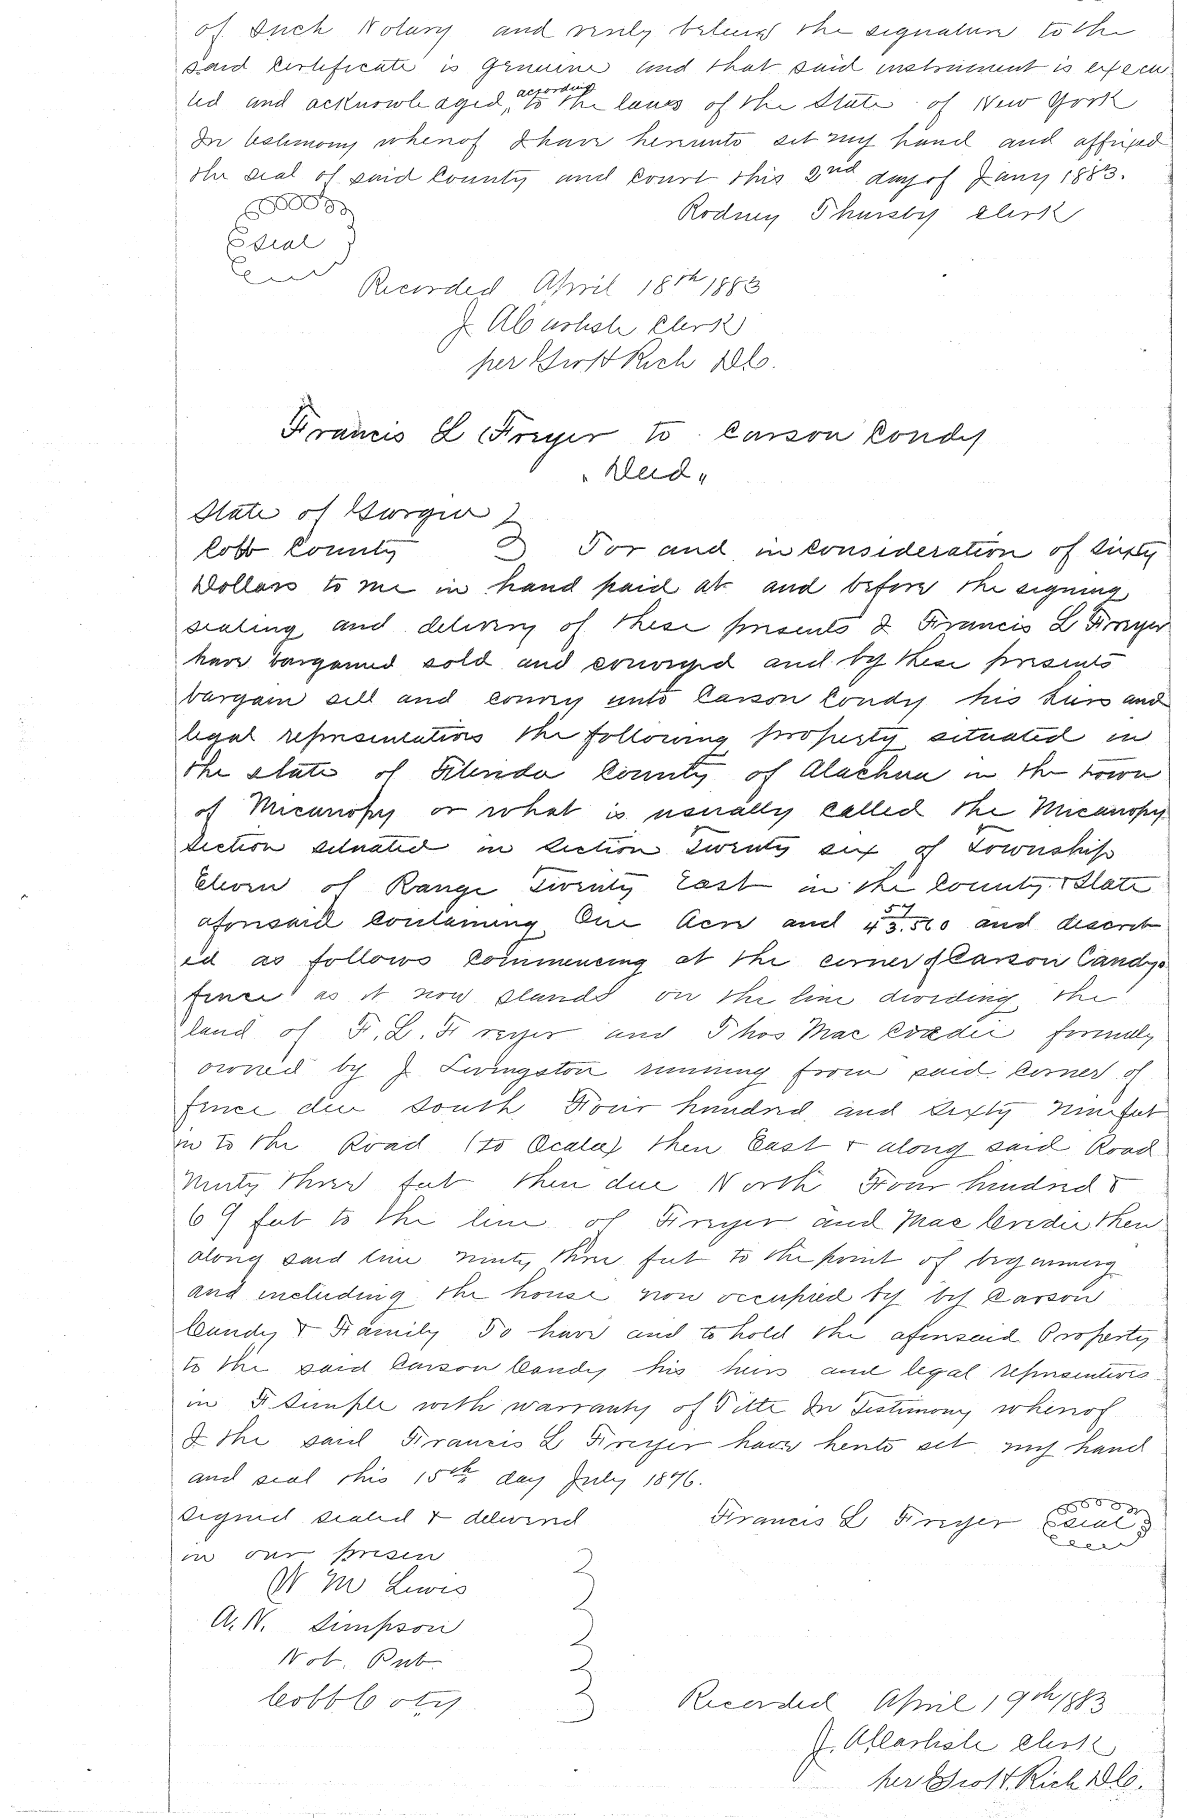 of such Notary and verily believe the signature to the
said Certificate is Genuine and that said instrument is execu
ted and acknowledged, according to the laws of the State of New York
In testimony whereof I have hereunto set my hand and affixed
the seal of said County and Court this 2nd day of Jany 1883.
Rodney Thursby Clerk
Seal
Recorded April 18th 1883
J A Carlisle Clerk
per Rich D.C.
Francis L Freyer to Carson Condy
"Deed"
State of Georgia
Cobb County For and in consideration of Sixty
Dollars to me in hand paid at and before the signing
sealing and delivery of these presents I Francis L Freyer
have bargained sold and conveyed and by these presents
bargain sell and convey unto Carson Condy his heirs and
legal representatives the following property situated in
the state of Florida County of Alachua in the town
of Micanopy or what is usually called the Micanopy
Section situated in Section Twenty six of Township
Eleven of Range Twenty East in the County & State
aforesaid containing One Acre and 57/43.560 and describ
ed as follows Commencing at the corner of Carson Candys
fence as it now stands on the line dividing the
land of F. L. Freyer and Thos Mac formerly
owned by J Livingston running from said Corner of
fence due South Four hundred and Sixty nine feet
in to the Road (to Ocala) then East & along said Road
Ninty three feet then due North Four hundred &
69 feet to the line of Freyer and Mac then
along said line ninty three feet to the point of beginning
and including the house now occupied by by Carson
Candy & Family To have and to hold the aforesaid Property
to the said Carson Candy his heirs and legal representives
in F Simple with warranty of Title In Testimony whereof
I the said Francis L Freyer have hereto set my hand
and seal this 15th day July 1876.
Signed sealed & delivered Francis L Freyer Seal
in our presen
W M Lewis
A. N. Simpson
Not. Pub.
Cobb Coty
Recorded April 19th 1883
J. A Carlisle Clerk
per Rich D.C.